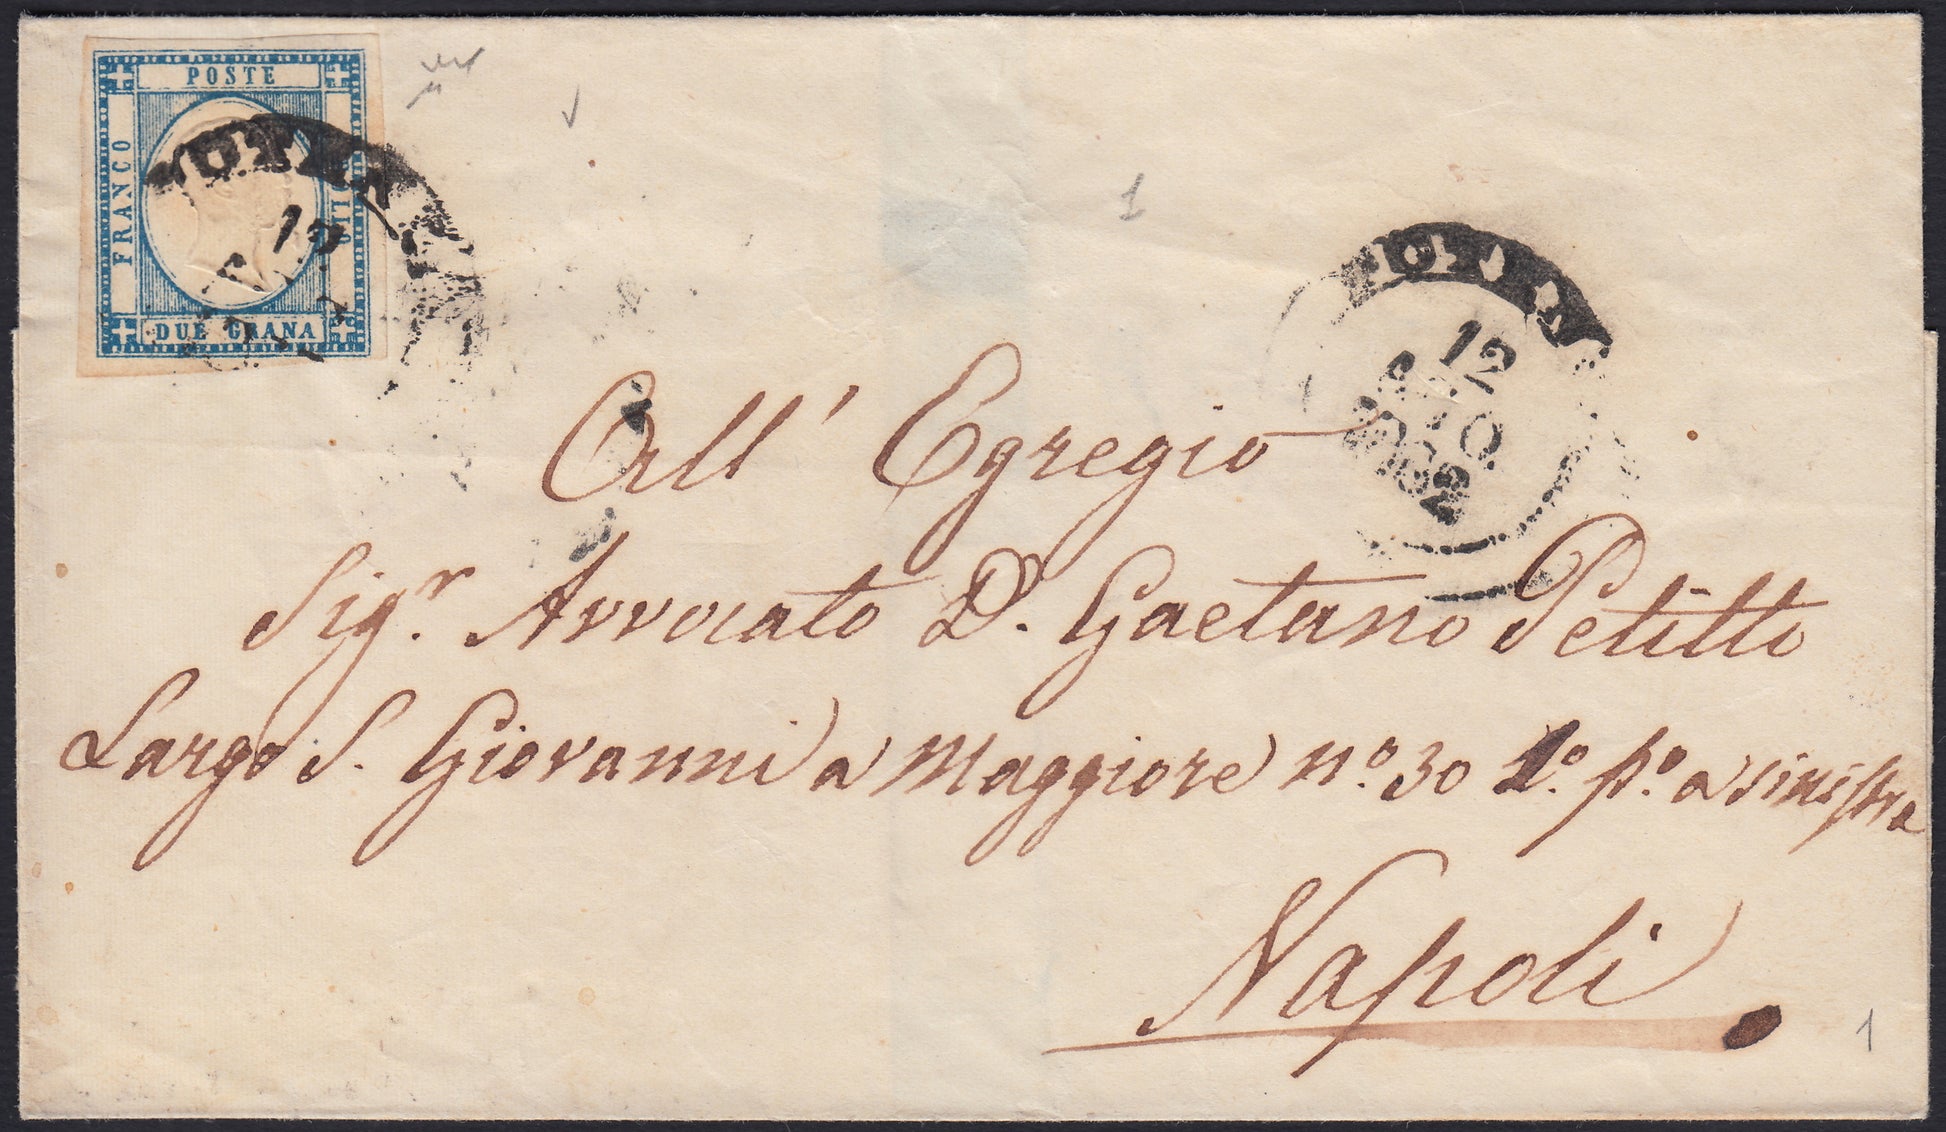 POSTE
FRANCO
DUE GRANA
12
12
1862
1
All' Egregio
Sig.r Avvocato D. Gaetano Petitti
Largo S. Giovanni a Maggiore n.º 30 1.º p.º a sinistra
Napoli
1